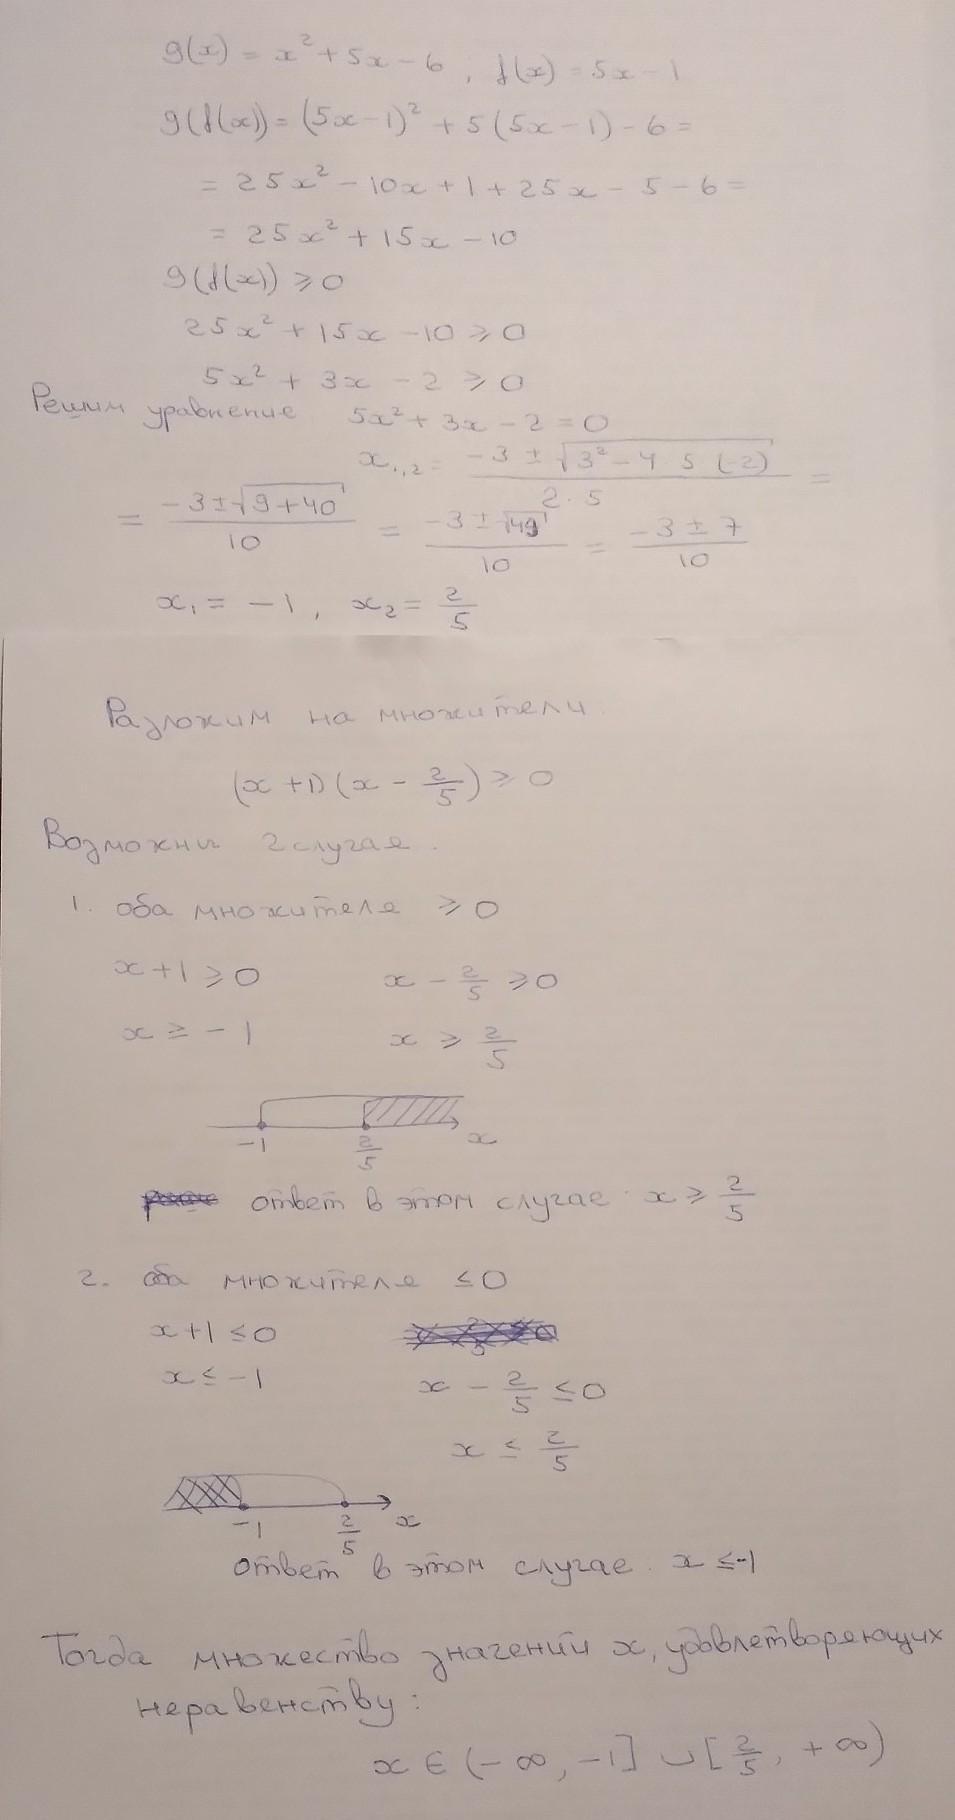 g(x) = x² + 5x - 6 ; f(x) = 5x - 1
g(f(x)) = (5x - 1)² + 5(5x - 1) - 6 =
= 25x² - 10x + 1 + 25x - 5 - 6 =
= 25x² + 15x - 10
g(f(x)) ⩾ 0
25x² + 15x - 10 ⩾ 0
5x² + 3x - 2 ⩾ 0
Решим уравнение 5x² + 3x - 2 = 0
x₁,₂ = (-3 ± √(3² - 4·5·(-2)))/(2·5) =
= (-3 ± √(9+40))/10 = (-3 ± √49)/10 = (-3 ± 7)/10
x₁ = -1, x₂ = 2/5
Разложим на множители:
(x + 1)(x - 2/5) ⩾ 0
Возможны 2 случая.
1. оба множителя ⩾ 0
x + 1 ⩾ 0 x - 2/5 ⩾ 0
x ≥ -1 x ⩾ 2/5
-1 2/5 x
ответ в этом случае: x ⩾ 2/5
2. оба множителя ≤ 0
x + 1 ≤ 0
x ≤ -1 x - 2/5 ≤ 0
x ≤ 2/5
-1 2/5 x
ответ в этом случае: x ≤ -1
Тогда множество значений x, удовлетворяющих
неравенству:
x ∈ (-∞, -1] ∪ [2/5, +∞)